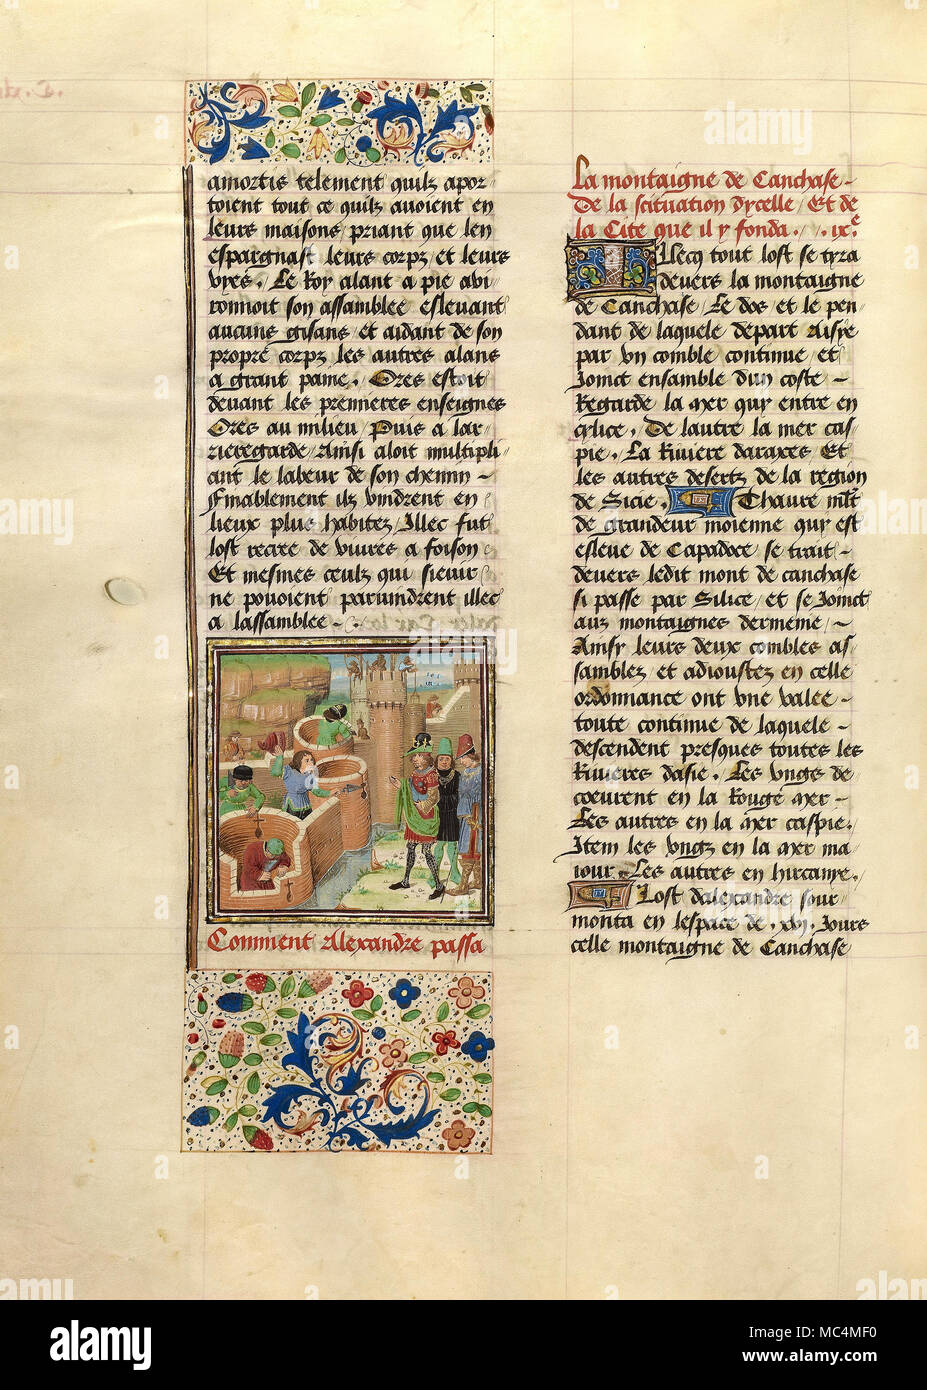 amortis telement quilz apor-
toient tout ce quilz avoient en
leurs maisons / priant que len
espargnast leurs corpz et leurs
vyes. Le Roy alant a pie avi-
ronnoit son assamblee esleuant
aucuns gisans / et aidant de son
propre corpz les autres alans
a grant paine. Ores estoit
devant les premieres enseignes
Ores au milieu / Puis a lar-
rieregarde / Ainsi aloit multipli-
ant le labeur de son chemin -
Finablement ilz vindrent en
lieux plus habitez / Illec fut
lost recre de vivres a foison
Et mesmes ceulz qui sievir
ne pouoient parvindrent illec
a lassamblee -
Comment Alexandre passa
La montaigne de Canchase -
De la scituation dycelle / Et de
la Cite que il y fonda. .ix.e
Illecq tout lost se tyra
devers la montaigne
de Canchase / Le dos et le pen-
dant de laquele depart Aisye
par vn comble continue et
Joinct ensamble dun coste -
Regarde la mer quy entre en
cylice. De lautre la mer cas-
pie. La Riviere daraxes Et
les autres desertz de la region
de Sicie. Thaure mlt
de grandeur moienne quy est
esleue de Capadoce se trait -
devers ledit mont de canchase
si passe par Silice / et se Joinct
aux montaignes dermenie / -
Ainsy leurs deux combles as-
samblez et adioustez en celle
ordonnance ont vne valee -
toute continue de laquele -
descendent presques toutes les
Rivieres dasie. Les vngs de-
coeurent en la Rouge mer -
Les autres en la mer caspie.
Item les vngz en la mer ma-
iour. Les autres en hircanye.
Lost dalexandre sour-
monta en lespace de .xvij. Jours
celle montaigne de Canchase
alamy
Image ID: MC4MF0
www.alamy.com